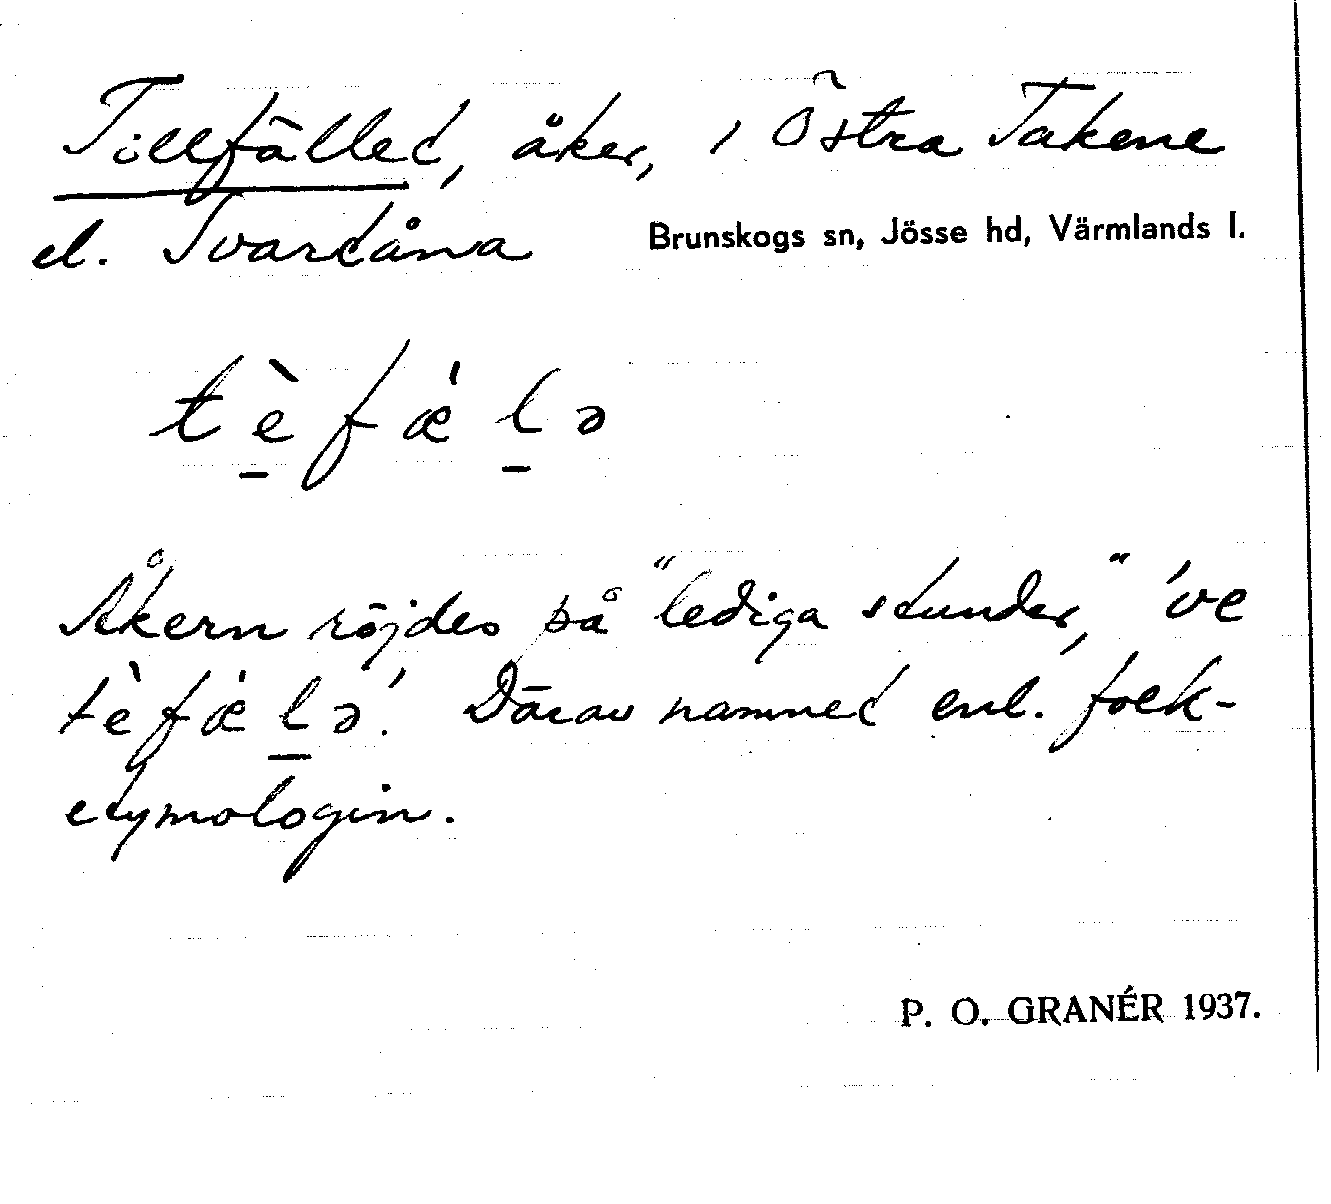 Tillfället, åker, i Östra Takene
el. Svartåna Brunskogs sn, Jösse hd, Värmlands l.
tèfǽlə
Åkern röjdes på "lediga stunder," 've
tèfǽlə'. Därav namnet enl. folk-
etymologin.
P. O. GRANÉR 1937.